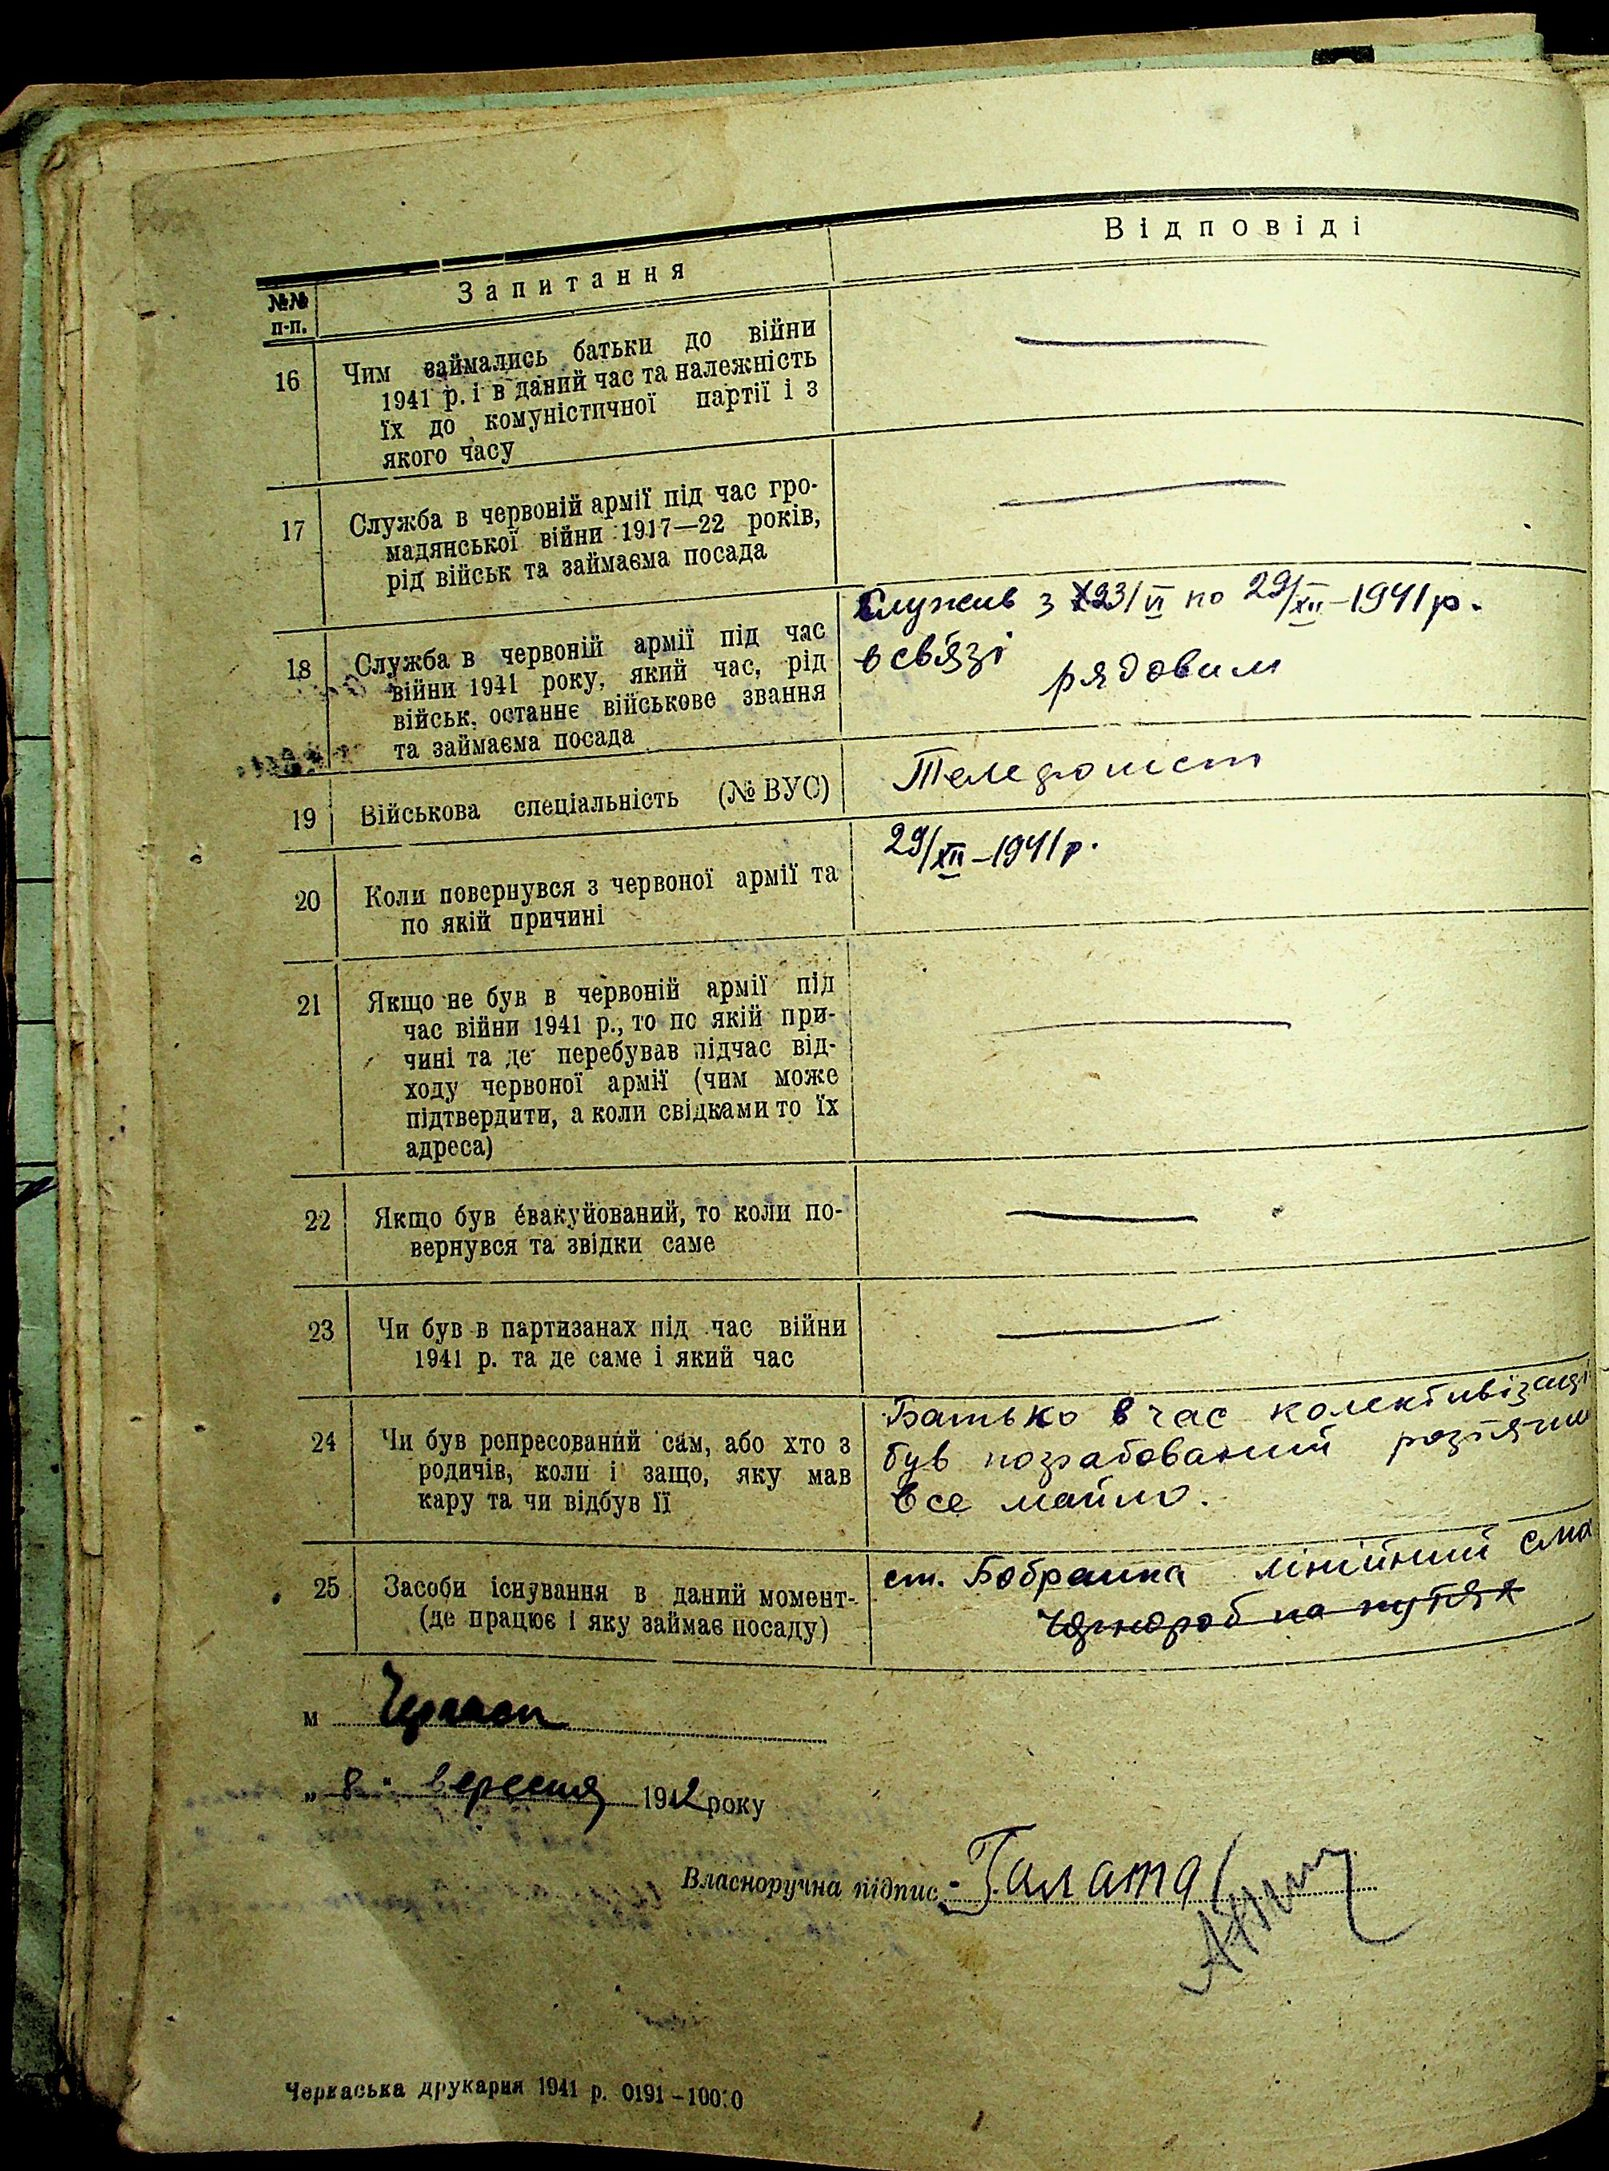 №№ п-п.
Запитання
Відповіді
16
Чим займались батьки до війни
1941 р. і в даний час та належність
їх до комуністичної партії і з
якого часу
17
Служба в червоній армії під час гро-
мадянської війни 1917—22 років,
рід військ та займаєма посада
18
Служба в червоній армії під час
війни 1941 року, який час, рід
військ, останнє військове звання
та займаєма посада
Служив з 23/VI по 29/XII–1941 р.
в свʼязі
рядовим
19
Військова спеціальність (№ ВУС)
Телефонист
20
Коли повернувся з червоної армії та
по якій причині
29/XII–1941 р.
21
Якщо не був в червоній армії під
час війни 1941 р., то по якій при-
чині та де перебував підчас від-
ходу червоної армії (чим може
підтвердити, а коли свідками то їх
адреса)
22
Якщо був евакуйований, то коли по-
вернувся та звідки саме
23
Чи був в партизанах під час війни
1941 р. та де саме і який час
24
Чи був репресований сам, або хто з
родичів, коли і защо, яку мав
кару та чи відбув її
Батько в час колективізаці
був пограбований
все майно.
25
Засоби існування в даний момент-
(де працює і яку займає посаду)
ст. Бобринка лінійний
Чорнороб на путях
м Черкаси
„ 8 " вересня 1942 року
Власноручна підпис Галата
Черкаська друкарня 1941 р. 0191–10000